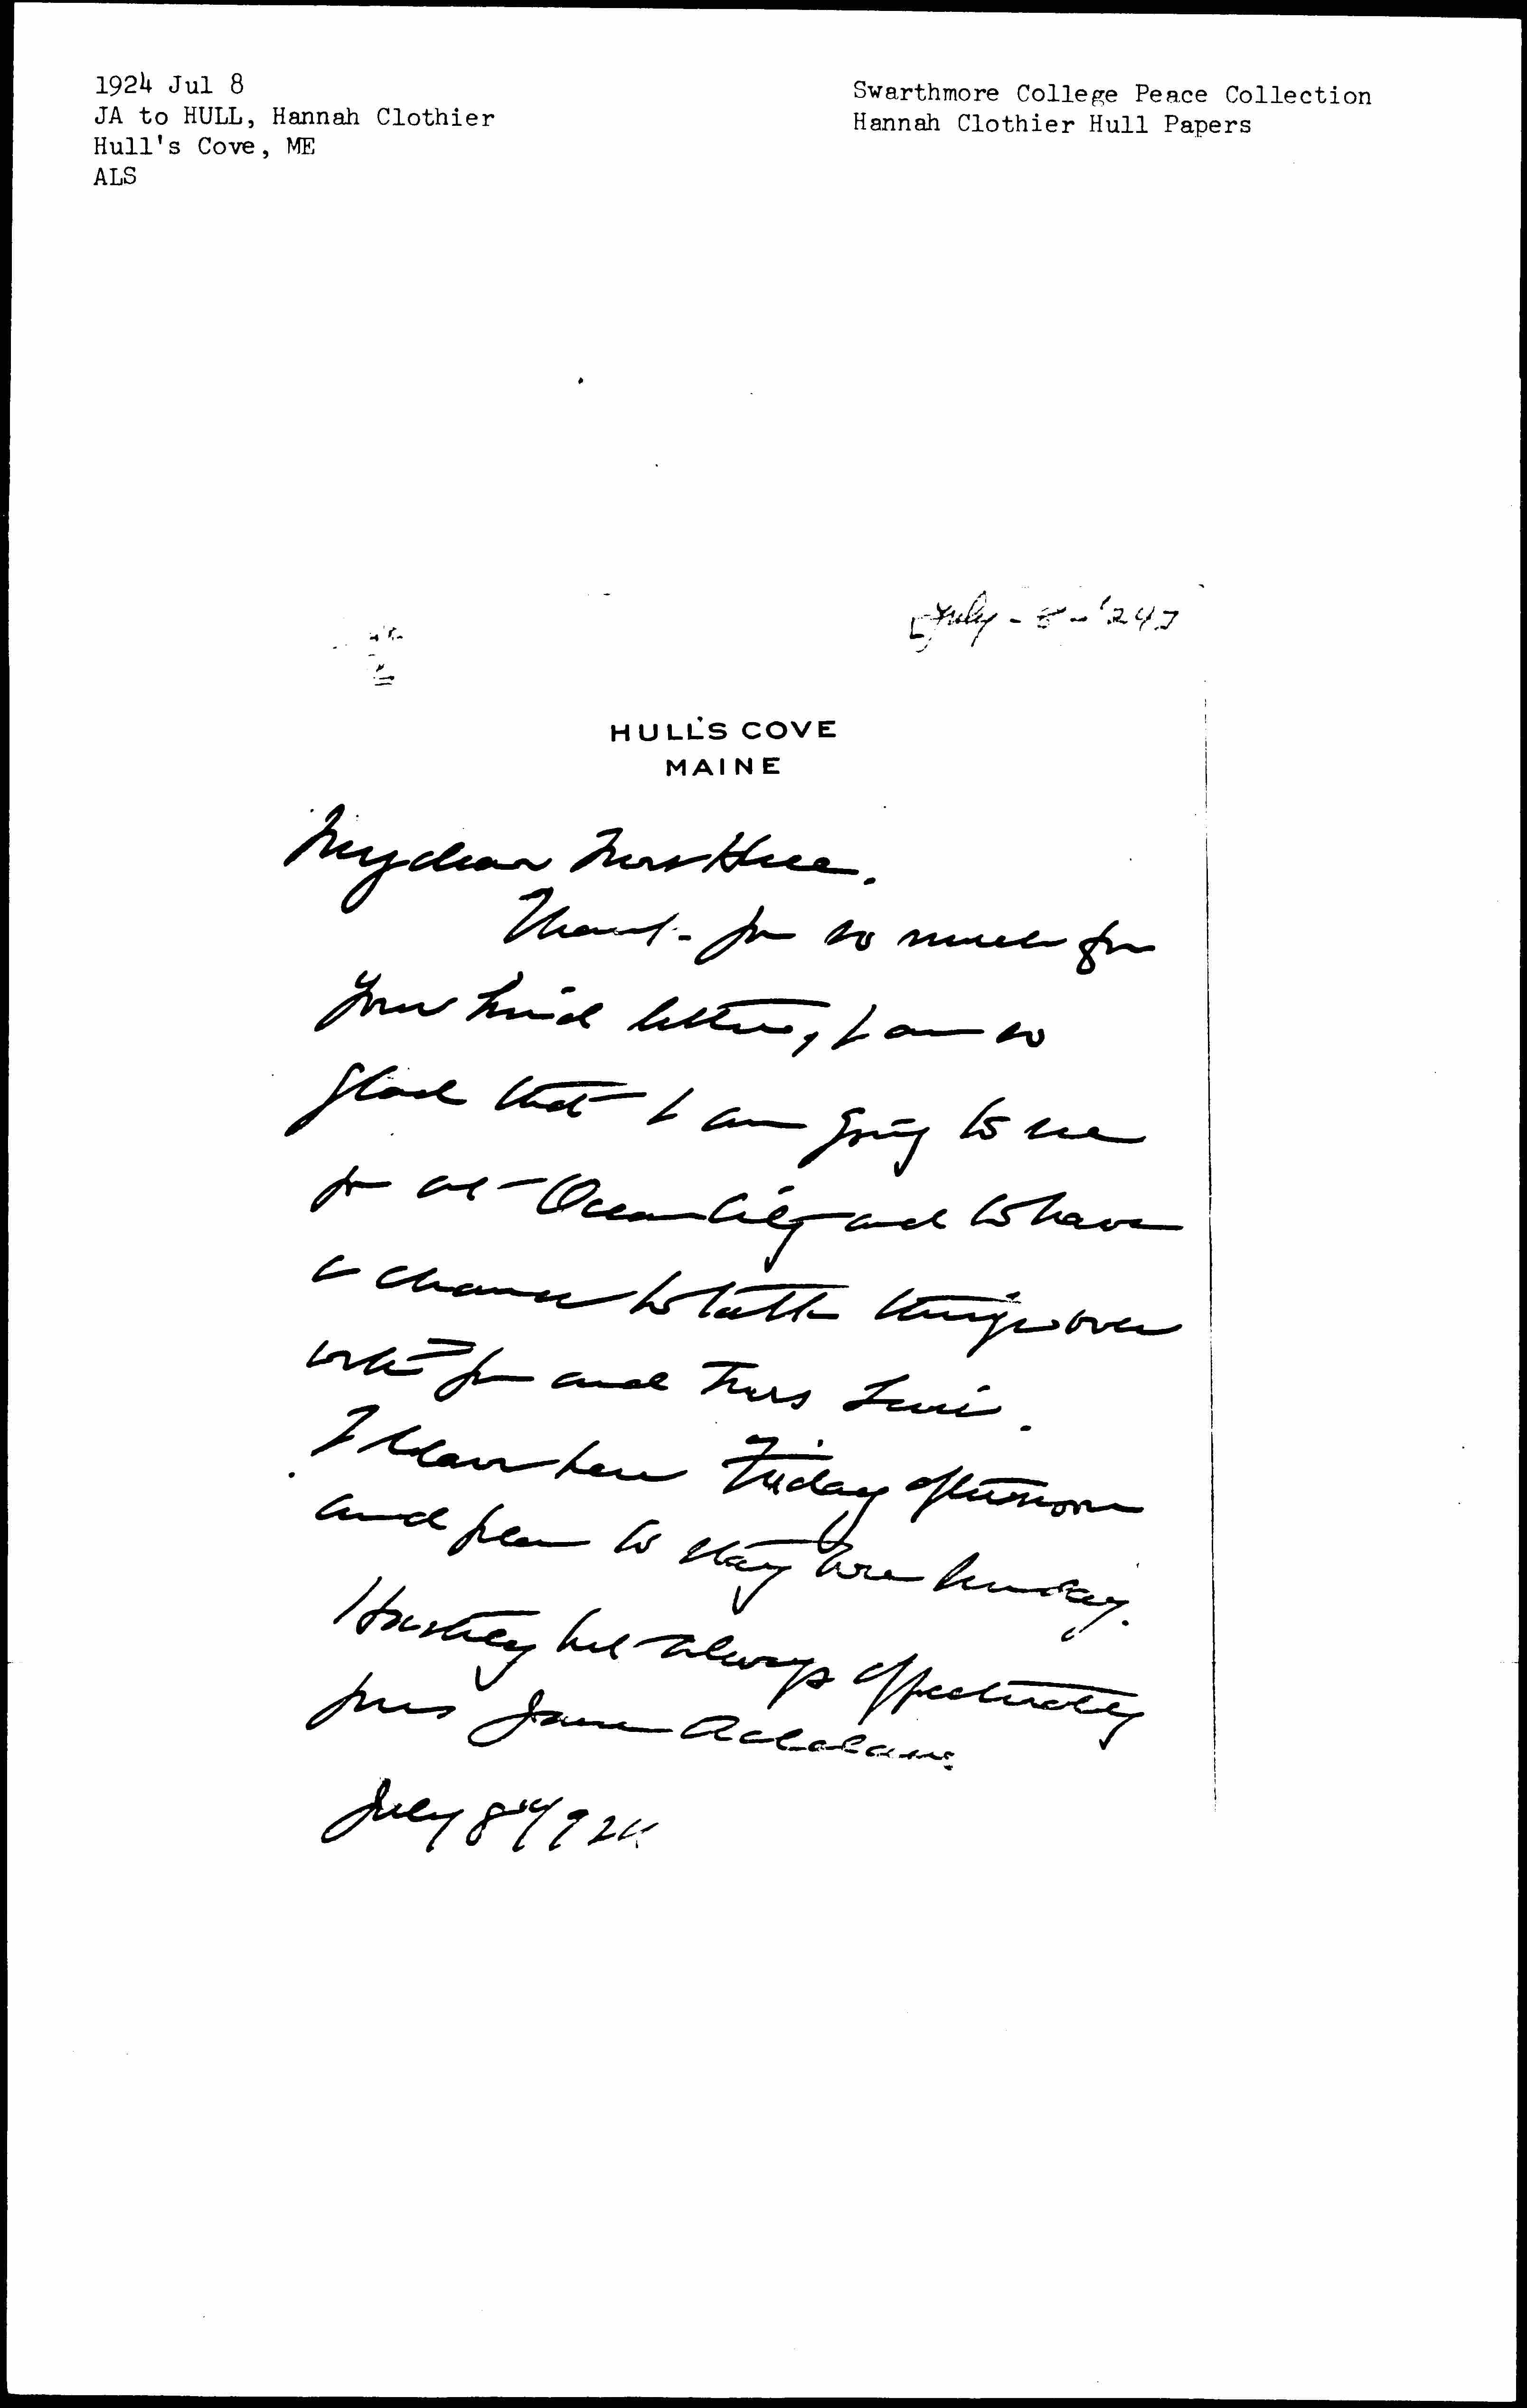 1924 Jul 8
JA to HULL, Hannah Clothier
Hull's Cove, ME
ALS
Swarthmore College Peace Collection
Hannah Clothier Hull Papers
[July - 8 - '24]
HULL'S COVE
MAINE
My dear Mrs Hull.
Thank you so much for
your kind letter, I am so
glad that I am going to see
you at Ocean City and to have
a chance to talk things over
with you and Mrs Lewis.
I leave here Friday afternoon
and plan to stay over Sunday.
Hastily but always affectionately
yours Jane Addams
July 8" 1924